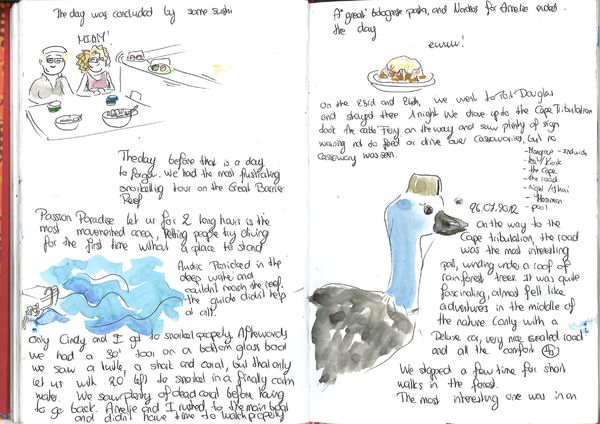 The day was concluded by some sushi
MIAM!
The day before that is a day
to forget. We had the most frustrating
snorkelling tour on the Great Barrier
Reef
Passion Paradise let us for 2 long hours in the
most movemented area, letting people try diving
for the first time without a place to stand
Audric Panicked in the
deep water and
couldn't reach the reef.
the guide didn't help
at all.
Only Cindy and I got to snorkel properly. Afterwards
we had a 30' tour on a bottom glass boat
we saw a turtle, a shark and coral, but that only
let us with 20' left to snorkel in a finally calm
water. We saw plenty of dead coral before having
to go back. Amelie and I rushed to the main boat
and didn't have time to watch properly
A "great" bolognese pasta, and Nachos for Amelie ended
the day
ewww!
On the 23rd and 24th, we went to Port Douglas
and stayed there 1 night. We drove up to the Cape Tribulation
took the cable Ferry on the way and saw plenty of sign
warning not to feed or drive over cassowaries, but no
cassoway was seen.
- Mangrove - sandwich
- the Cape
- the road
- Mossman
- pool
26.07.2012
On the way to the
Cape tribulation, the road
was the most interesting
part, winding under a roof of
rainforest trees. It was quite
fascinating, almost felt like
adventurers in the middle of
the nature (only with a
Deluxe car, very nice sealed road
and all the comfort
We stopped a few time for short
walks in the forest.
The most interesting one was in an